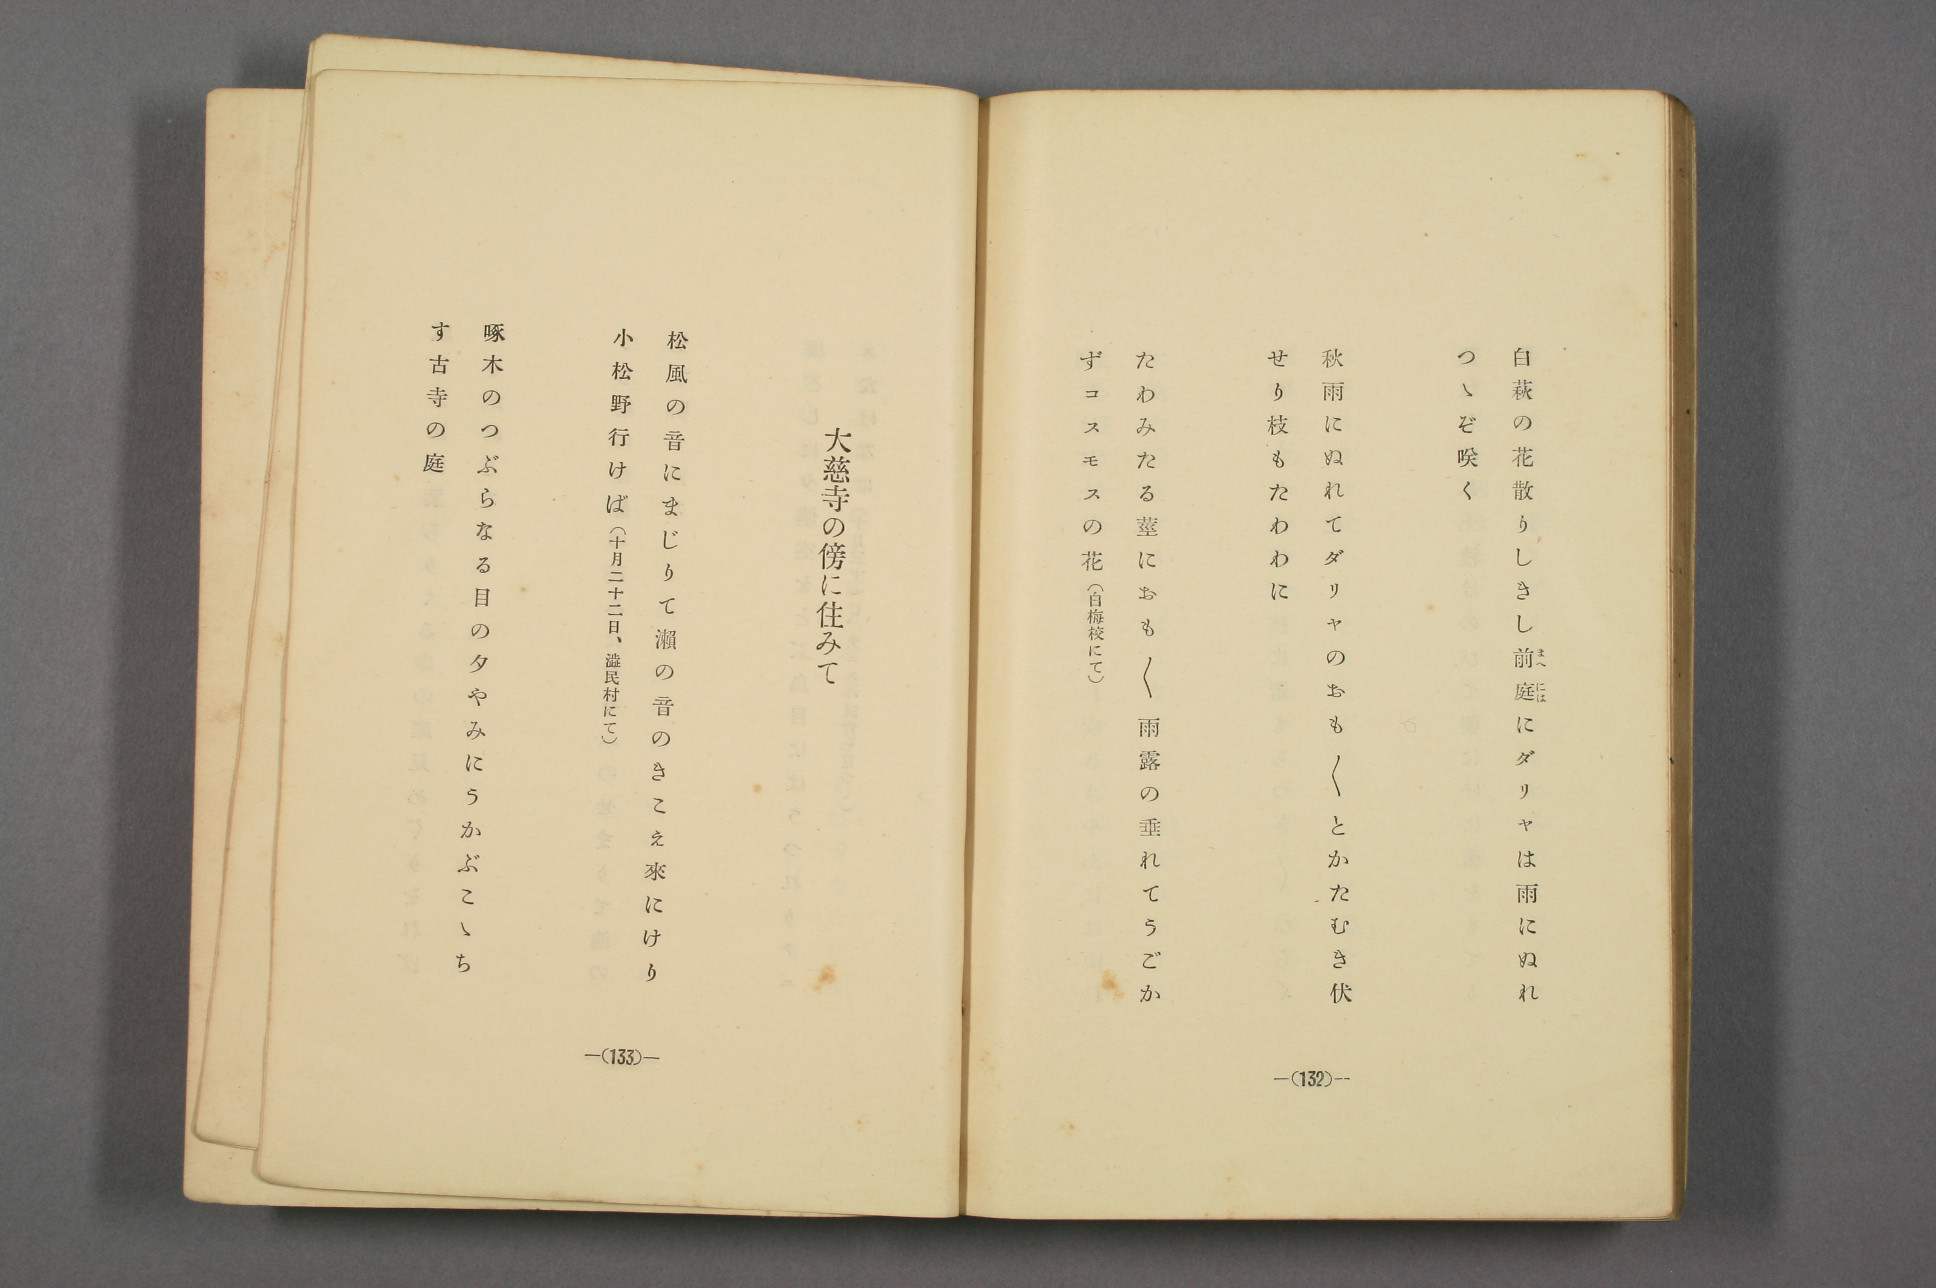 白萩の花散りしきし前庭にダリヤは雨にぬれ
まへには
つゝぞ咲く
秋雨にぬれてダリヤのおも〱とかたむき伏
せり枝もたわわに
たわみたる莖におも〱雨露の垂れてうごか
ずコスモスの花(白梅校にて)
―(132)―
大慈寺の傍に住みて
松風の音にまじりて瀬の音のきこえ來にけり
小松野行けば(十月二十二日、澁民村にて)
啄木のつぶらなる目の夕やみにうかぶこゝち
す古寺の庭
―(133)―